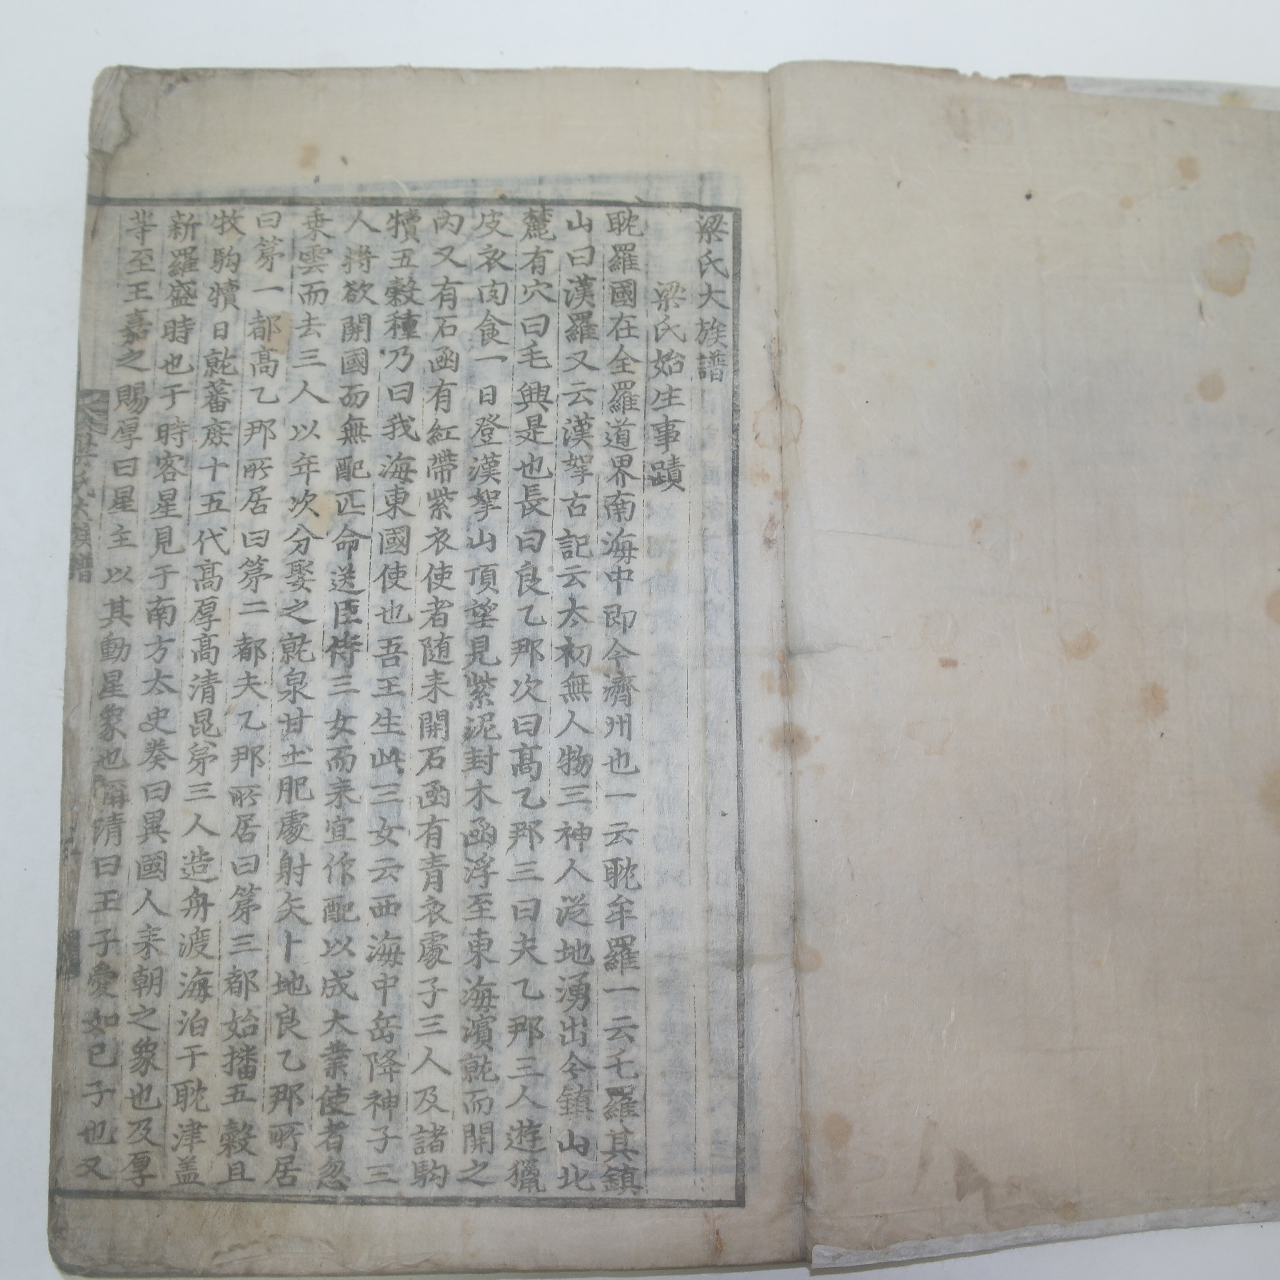 梁氏大族譜
梁氏始生事蹟
耽羅國在全羅道界南海中即今濟州也一云耽牟羅一云乇羅其鎮
山曰漢羅又云漢拏古記云太初無人物三神人從地湧出今鎮山北
麓有穴曰毛興是也長曰良乙那次曰髙乙那三曰夫乙那三人遊獵
皮衣肉食一日登漢拏山頂望見紫泥封木函浮至東海濱就而開之
內又有石函有紅帶紫衣使者随来開石函有青衣處子三人及諸駒
犢五穀種乃曰我海東國使也吾王生此三女云西海中岳降神子三
人將欲開國而無配匹命送臣侍三女而来宜作配以成大業使者忽
乗雲而去三人以年次分娶之就泉甘土肥處射矢卜地良乙那所居
曰第一都髙乙那所居曰第二都夫乙那所居曰第三都始播五穀且
牧駒犢日就蕃庶十五代髙厚髙清昆弟三人造舟渡海泊于耽津盖
新羅盛時也于時客星見于南方太史奏曰異國人来朝之象也及厚
等至王嘉之賜厚曰星主以其動星象也稱清曰王子愛如己子也又
梁氏大族譜